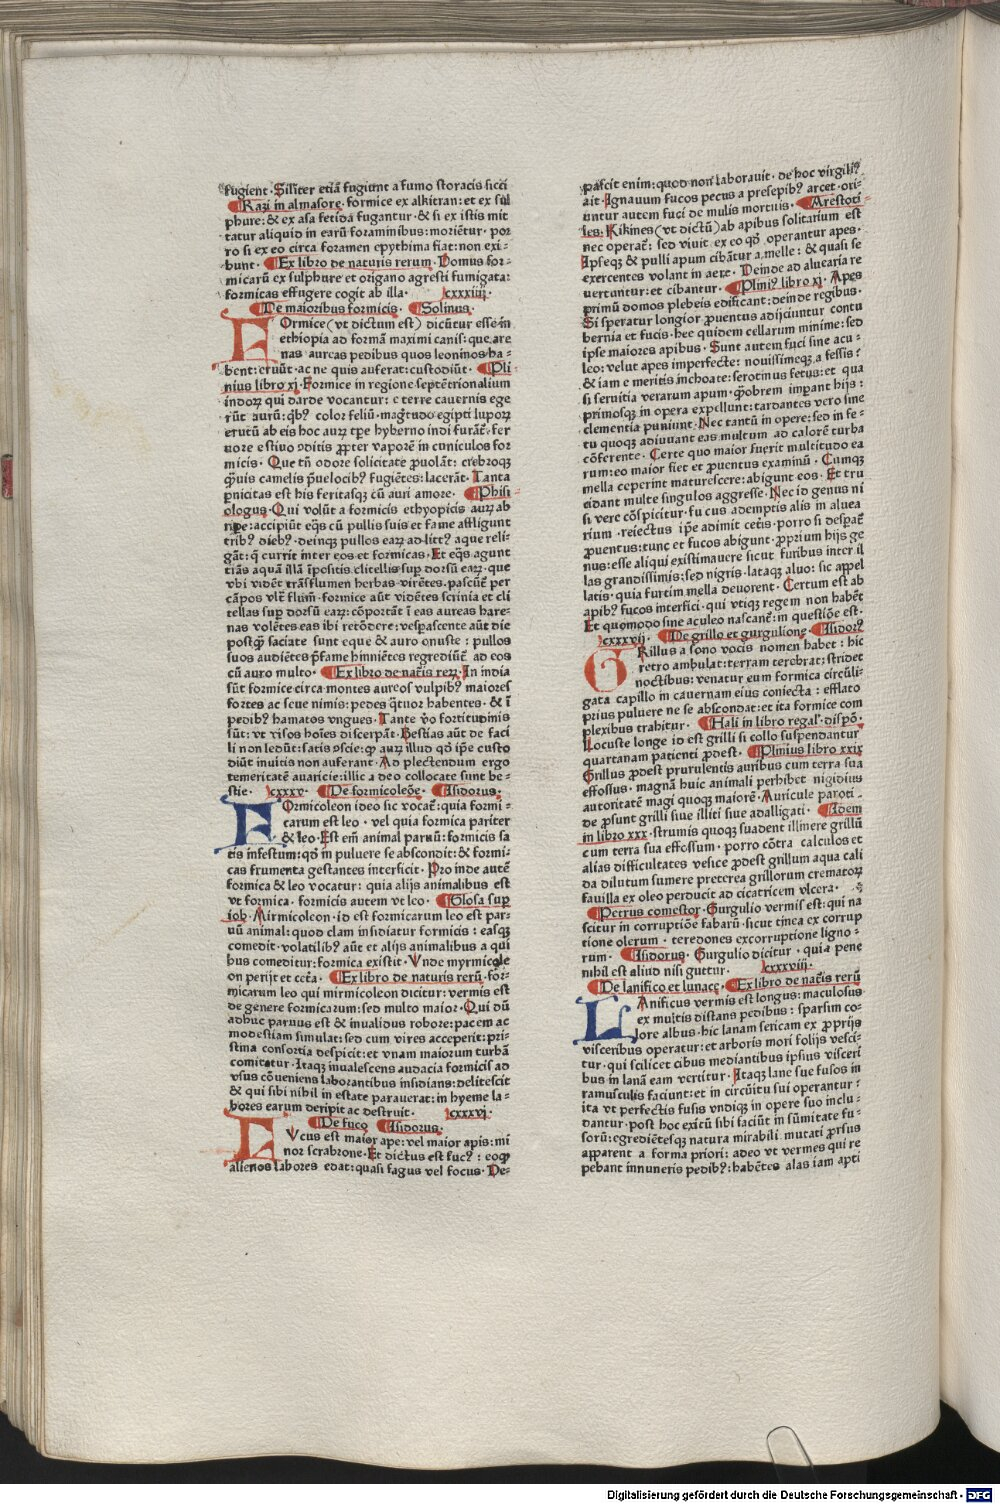 fugient. Siliter etiā fugiunt a fumo storacis sicci
Razi in almasore. formice ex alkitran: et ex sul
phure: & ex asa fetida fugantur. & si ex istis mit
tatur aliquid in earū foraminibus: moriētur. por
ro si ex eo circa foramen epythima fiat: non exi-
bunt. Ex libro de naturis rerum. Domus for-
micarū ex sulphure et origano agresti fumigata:
formicas effugere cogit ab illa. cxxxiiij
De maioribus formicis. Solinus.
FOrmice (vt dictum est) dicūtur esse in
ethiopia ad formā maximi canis: que are
nas aureas pedibus quos leoninos ha-
bent: eruūt. ac ne quis auferat: custodiūt. Pli
nius libro xj. Formice in regione septētrionalium
indoꝝ qui darde vocantur: e terre cavernis ege
rūt aurū: qbꝰ color feliū. magtudo egipti lupoꝝ
erutū ab eis hoc auꝝ tpe hyberno indi furāt. fer
uore estiuo ꝯditis ꝓpter vaporē in cuniculos for
micis. Que tn̄ odore solicitate ꝓuolāt: crebroqꝫ
ꝙuis camelis p̄uelocibꝰ fugiētes: lacerāt. Tanta
pnicitas est his feritasqꝫ cū auri amore. Phisi
ologus. Qui volūt a formicis ethyopicis auꝝ ab
ripe: accipiūt eqꝰs cū pullis suis et fame affligunt
tribꝰ diebꝰ. deinqꝫ pullos eaꝝ ad littꝰ aque reli-
gāt: q̄ currit inter eos et formicas. Et eqꝰs agunt
trās aquā illā īpositis clitellis sup dorsū eaꝝ. que
vbi vidēt trāsflumen herbas virētes. pascūt per
cāpos vlt̄ flum̄. formice aūt vidētes scrinia et cli
tellas sup dorsū eaꝝ: cōportāt ī eas aureas hare-
nas volētes eas ibi retōdere: vesperascente aūt die
postꝙ saciate sunt eque & auro onuste: pullos
suos audiētes p̄ fame hinniētes regrediūt ad eos
cū auro multo. Ex libro de nat̄is reꝝ. In india
sūt formice circa montes aureos vulpibꝰ maiores
fortes ac seue nimis: pedes q̄tuor habentes. & ī
pedibꝰ hamatos vngues. Tante v̊o fortitudinis
sūt: vt visos hoīes discerpāt. Bestias aūt de faci
li non ledūt: satis ꝯscie: ꝙ auꝝ illud qd̄ ipē custo
diūt inuitis non auferant. Ad plectendum ergo
temeritatē auaricie: illic a deo collocate sunt be-
stie. cxxxv. De formicoleōe. Isidorus.
FOrmicoleon ideo sic vocat̄: quia formi-
carum est leo. vel quia formica pariter
& leo. Est em̄ animal paruū: formicis sa
tis infestum: qd̄ in puluere se abscondit: & formi-
cas frumenta gestantes interficit. Pro inde autē
formica & leo vocatur: quia alijs animalibus est
vt formica. formicis autem vt leo. Glosa sup
iob. Mirmicoleon. id est formicarum leo est par-
uū animal: quod clam insidiatur formicis: easqꝫ
comedit. volatilibꝰ aūt et alijs animalibus a qui
bus comeditur: formica existit. Vnde myrmicole
on perijt et cet̄a. Ex libro de naturis rerū. for-
micarum leo qui mirmicoleon dicitur: vermis est
de genere formicarum: sed multo maior. Qui dū
adhuc paruus est & inualidus robore: pacem ac
modestiam simulat: sed cum vires acceperit: pri-
stina consortia despicit: et vnam maiorum turbā
comitatur. Itaqꝫ inualescens audacia formicis ad
vsus cōueniens laborantibus insidians: delitescit
& qui sibi nihil in estate parauerat: in hyeme la-
bores earum deripit ac destruit. cxxxvj.
De fuco Isidorus.
FVcus est maior ape: vel maior apis: mi
nor scrabrone. Et dictus est fucꝰ: eoqꝫ
alienos labores edat: quasi fagus vel focus. De-
pascit enim: quod non laborauit. de hoc virgiliꝰ
ait. Ignauum fucos pecus a presepibꝰ arcet. ori-
untur autem fuci de mulis mortuis. Arestoti-
les. Kikines (vt dictū) ab apibus solitarium est
nec operat̄: sed viuit ex eo qd̄ operantur apes.
Ipseqꝫ & pulli apum cibātur a melle: & quasi se
exercentes volant in aere. Deinde ad aluearia re
uertuntur: et cibantur. Pliniꝰ libro xj. Apes
primū domos plebeis edificant: deinde regibus.
Si speratur longior ꝓuentus adijciuntur contu
bernia et fucis. hec quidem cellarum minime: sed
ipse maiores apibus. Sunt autem fuci sine acu-
leo: velut apes imperfecte: nouissimeqꝫ a fessis:
& iam emeritis inchoate: serotinus fetus: et qua
si seruitia verarum apum. qꝫobrem imperant hijs:
primosqꝫ in opera expellunt: tardantes vero sine
clementia puniunt. Nec tantū in opere: sed in fe-
tu quoqꝫ adiuuant eas multum ad calorē turba
cōferente. Certe quo maior fuerit multitudo ea
rum: eo maior fiet et ꝓuentus examinū. Cumqꝫ
mella ceperint maturescere: abigunt eos. Et tru
cidant multe singulos aggresse. Nec id genus ni
si vere cōspicitur. fucus ademptis alis in aluea
rium. reiectus ip̄e adimit cet̄is. porro si desparat̄
ꝓuentus: tunc et fucos abigunt. ꝓprium hijs ge
nus: esse aliqui existimauere sicut furibus inter il
las grandissimis: sed nigris. lataqꝫ aluo: sic appel
latis. quia furtim mella deuorent. Certum est ab
apibꝰ fucos interfici. qui vtiqꝫ regem non habēt
Et quomodo sine aculeo nascant̄: in questiōe est.
cxxxvij. De grillo et gurgulione. Isidorꝰ
GRillus a sono vocis nomen habet: hic
retro ambulat: terram terebrat: stridet
noctibus: venatur eum formica circūli-
gata capillo in cavernam eius coniecta: efflato
prius puluere ne se abscondat: et ita formice com
plexibus trahitur. Hali in libro regal'. dispō.
Locuste longe id est grilli si collo suspendantur
quartanam patienti ꝓdest. Plinius libro xxix
Grillus ꝓdest prurulentis auribus cum terra sua
effossus. magnā huic animali perhibet nigidius
autoritatē magi quoqꝫ maiorē. Auricule paroti-
de ꝓsunt grilli siue illiti siue adalligati. Idem
in libro xxx. strumis quoqꝫ suadent illinere grillū
cum terra sua effossum. porro cōtra calculos et
alias difficultates vesice ꝓdest grillum aqua cali
da dilutum sumere preterea grillorum crematoꝝ
fauilla ex oleo perducit ad cicatricem vlcera.
Petrus comestor. Gurgulio vermis est: qui na
scitur in corruptiōe fabarū. sicut tinea ex corrup
tione olerum. teredones excorruptione ligno-
rum. Isidorus. Gurgulio dicitur. quia pene
nihil est aliud nisi guttur. cxxxviij.
De lanifico et lunace. Ex libro de nat̄is rerū
LAnificus vermis est longus: maculosus
ex multis distans pedibus: sparsim co-
lore albus. hic lanam sericam ex ꝓprijs
visceribus operatur: et arboris mori folijs vesci-
tur. qui scilicet cibus mediantibus ipsius visceri
bus in lanā eam vertitur. Itaqꝫ lane sue fusos in
ramusculis faciunt: et in circūitu sui operantur:
ita vt perfectis fusis vndiqꝫ in opere suo inclu-
dantur. post hoc exitū sibi faciūt in sūmitate fu-
sorū: egrediētesqꝫ natura mirabili mutati ꝓrsus
apparent a forma priori: adeo vt vermes qui re
pebant innuneris pedibꝰ: habētes alas iam apti
Digitalisierung gefördert durch die Deutsche Forschungsgemeinschaft - DFG